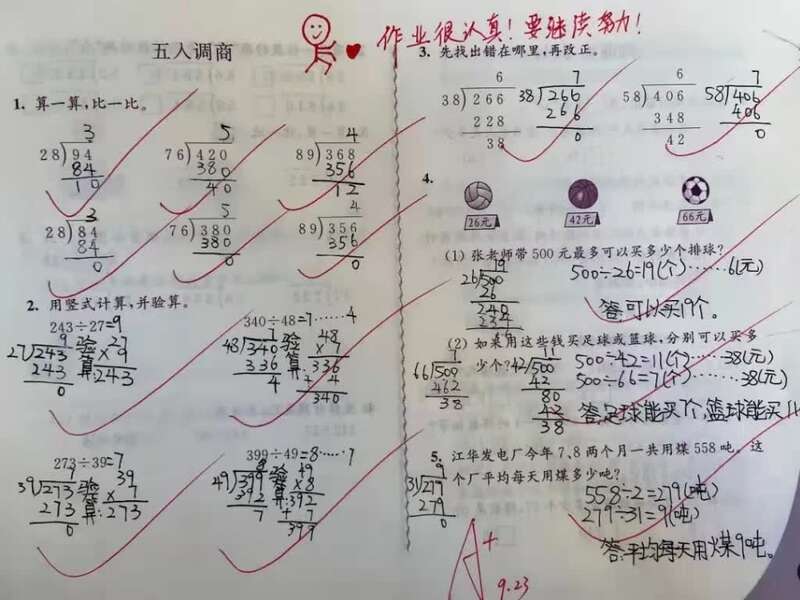 作业很认真！要继续努力！
五入调商
1. 算一算，比一比。
3
28)94
84
10
5
76)420
380
40
4
89)368
356
12
3
28)84
84
0
5
76)380
380
0
4
89)356
356
0
2. 用竖式计算，并验算。
243÷27=9
9
27)243
243
0
验算:
27
×9
243
340÷48=7……4
7
48)340
336
4
验算:
48
×7
336
+4
340
273÷39=7
7
39)273
273
0
验算:
39
×7
273
399÷49=8……7
8
49)399
392
7
验算:
49
×8
392
+7
399
3. 先找出错在哪里，再改正。
6
38)266
228
38
7
38)266
266
0
6
58)406
348
42
7
58)406
406
0
4.
26元 42元 66元
(1) 张老师带500元最多可以买多少个排球？
19
26)500
26
240
234
6
500÷26=19(个)……6(元)
答:可以买19个。
(2) 如果用这些钱买足球或篮球，分别可以买多
少个？
7
66)500
462
38
11
42)500
42
80
42
38
500÷42=11(个)……38(元)
500÷66=7(个)……38(元)
答:足球能买7个,篮球能买11
5. 江华发电厂今年7、8两个月一共用煤558吨。这
个厂平均每天用煤多少吨？
9
31)279
279
0
558÷2=279(吨)
279÷31=9(吨)
答:平均每天用煤9吨。
A+
9.23